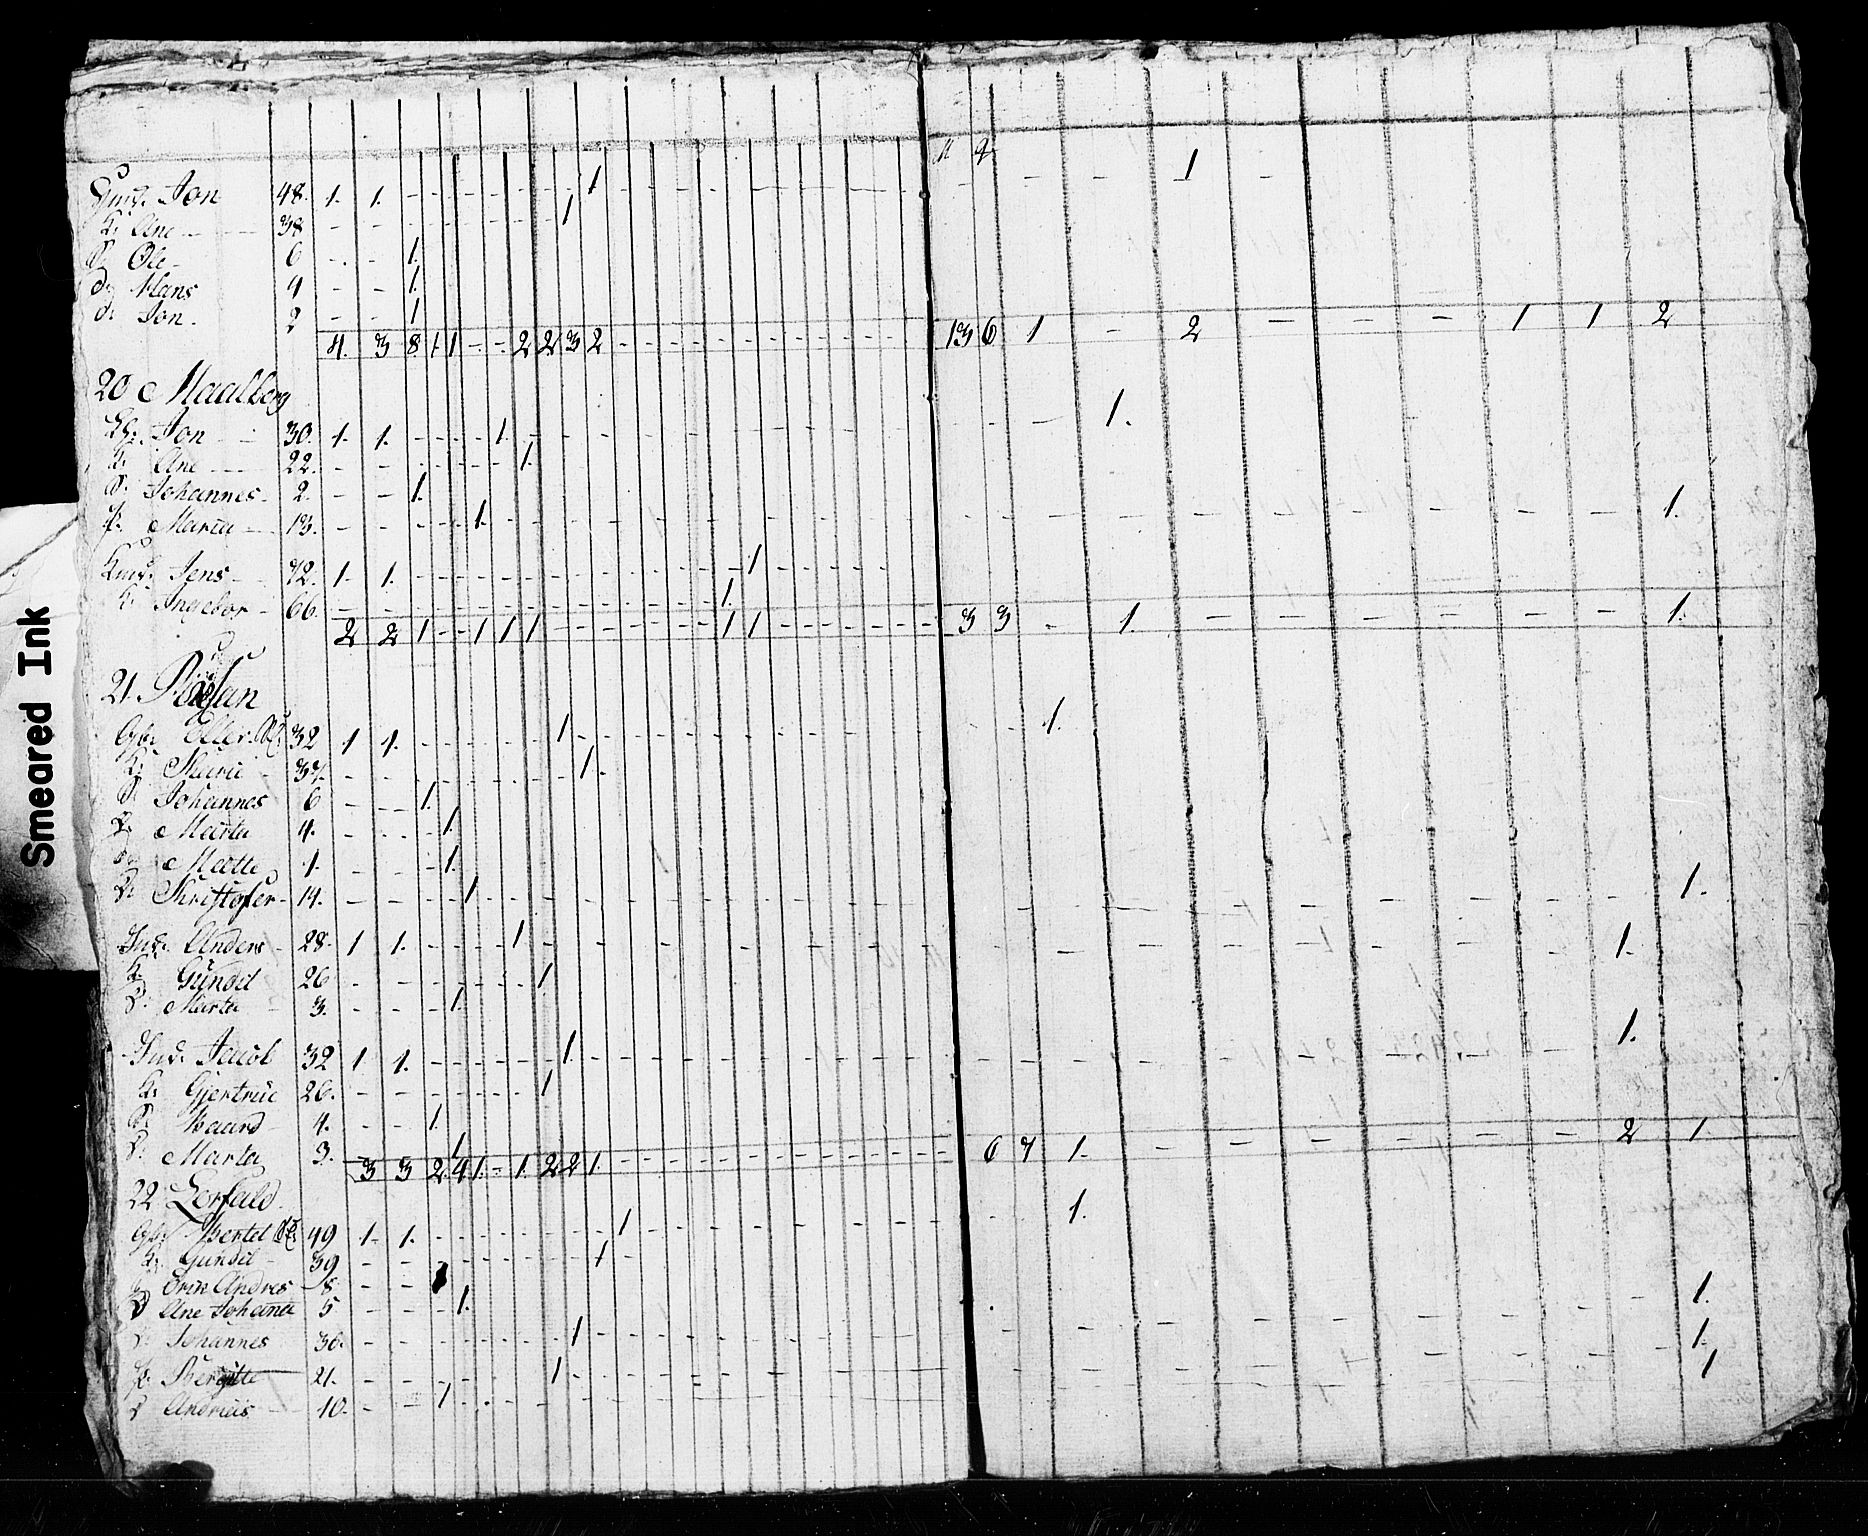 M q
Jon 48. 1. 1. - - - - - - - 1 - - - - - - 1 -
K: Ane 38 - - - - - - - - 1
S. Ole - 6 - - 1.
d: Hans 4 - - 1.
d: Jon. 2 - - 1
4. 3 8 1 1 - - 2 2 3 2 - - - - 13 6 1 - 2 - - - 1 1 2
20 Maalberg
Jon 30. 1. 1. - - - - 1. - - - - - 1.
K: Ane 22. - - - - - - - 1.
S. Johannes - 2. - - 1.
Maria 13. - - - - - 1. - - - - - - 1.
Jens 72. 1. 1. - - - - - - - - - - 1 - - - -
K: Ingebor - 66. - - - - - - - - - - 1.
2 2 1 - - 1 1 1 - - - - - - 1 1 - - - - 3 3 - 1. - - - - - - 1.
21.
Eller 32 1 1. - - - - - 1 - - - - - 1.
K: 37. - - - - - - - 1.
S. Johannes 6 - - 1.
D. Marta 4. - - - 1.
d: Mette 1. - - - 1.
Christofer - 14. - - - - 1 - - - - - - 1.
Ind: Anders - 28. 1 1. - - - - 1 - - - - - 1.
K: Gundil 26 - - - - - - 1
D. Marta - 3. - - - 1.
Ind: Jacob 32 1 1. - - - - - 1. - - - - - 1.
K: Gjertrue 26. - - - - - - 1
S. Baard 4. - - 1.
D. Marta 3. - - - 1
3 3 2. 4 1. - 1. 2 2 1. - - - - 6 7 1. - - - - - - 2 1.
22
Bertel 49 1. 1. - - - - - - 1 - - - - - 1.
K: Gundil - 39 - - - - - - - 1
Andres - 8 - -
D Ane Johana 5 - - - 1. 1.
Johannes 36. - - - - - - - 1 - - - - - 1.
Bergitte 21. - - - - - - 1 - - - - - 1
Andreas 10. - - 1 - - - -
Smeared Ink